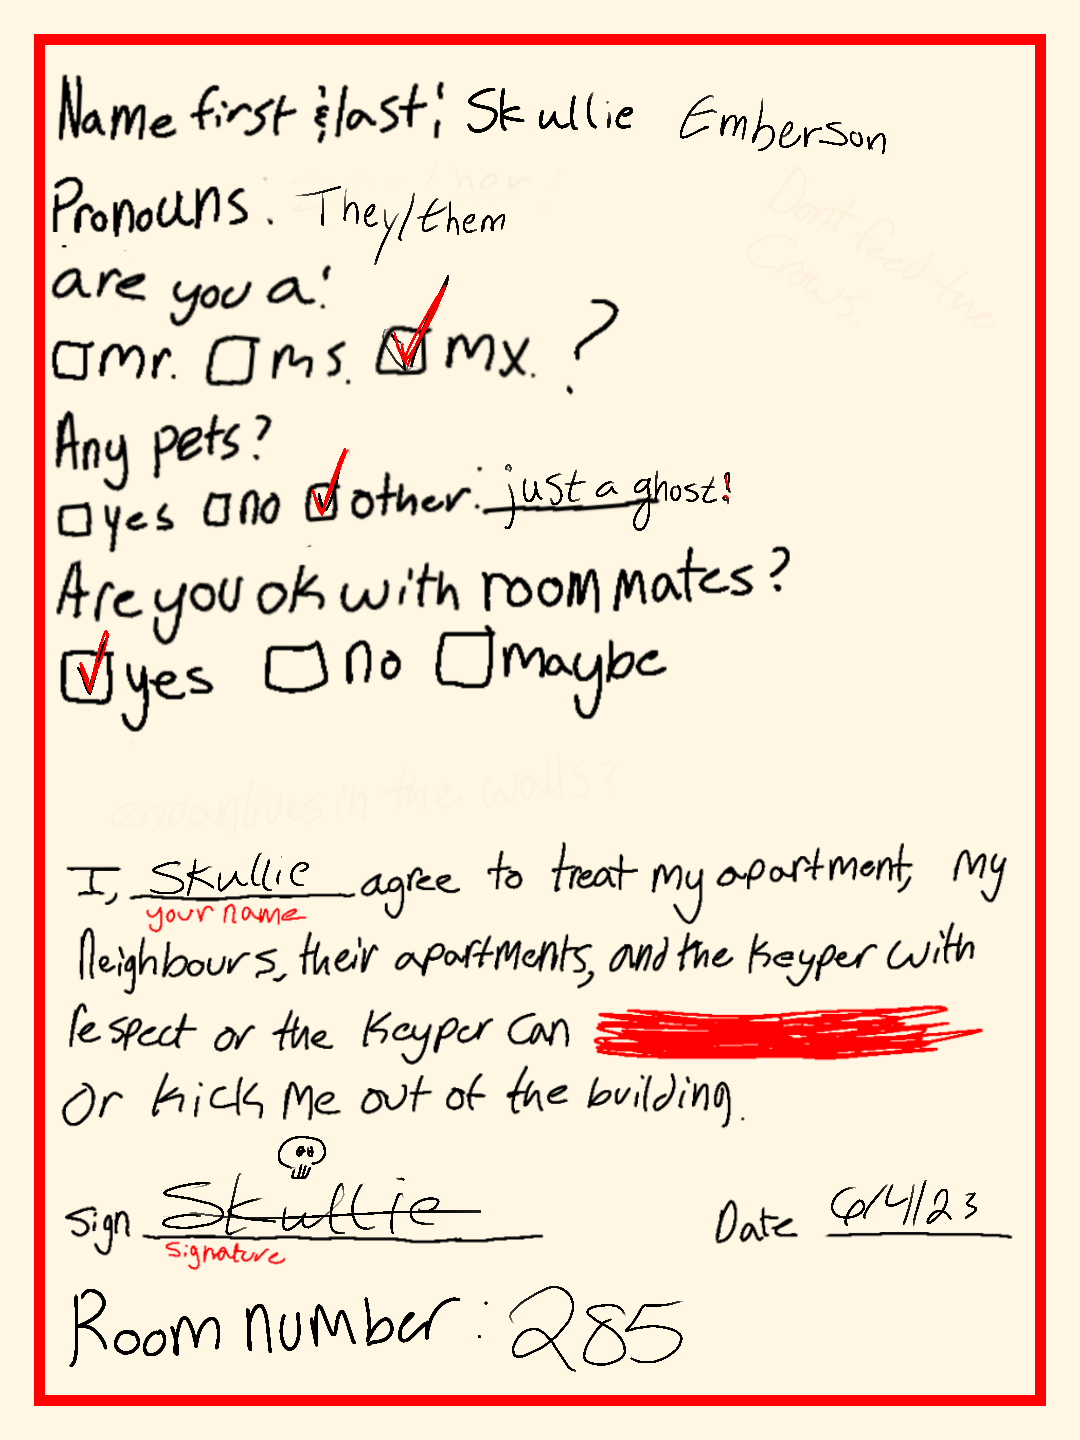 Name first & last: Skullie Emberson
Pronouns. They/them
Dont feed the
Crows
are you a:
mr. ms. mx. ?
Any pets?
yes no other: just a ghost!
Are you ok with roommates?
yes no maybe
lives in the walls?
I, Skullie agree to treat my apartment, my
your name
Neighbours, their apartments, and the Keyper with
respect or the Keyper can
Or kick me out of the building.
Sign Skullie Date 6/4/23
signature
Room number: 285